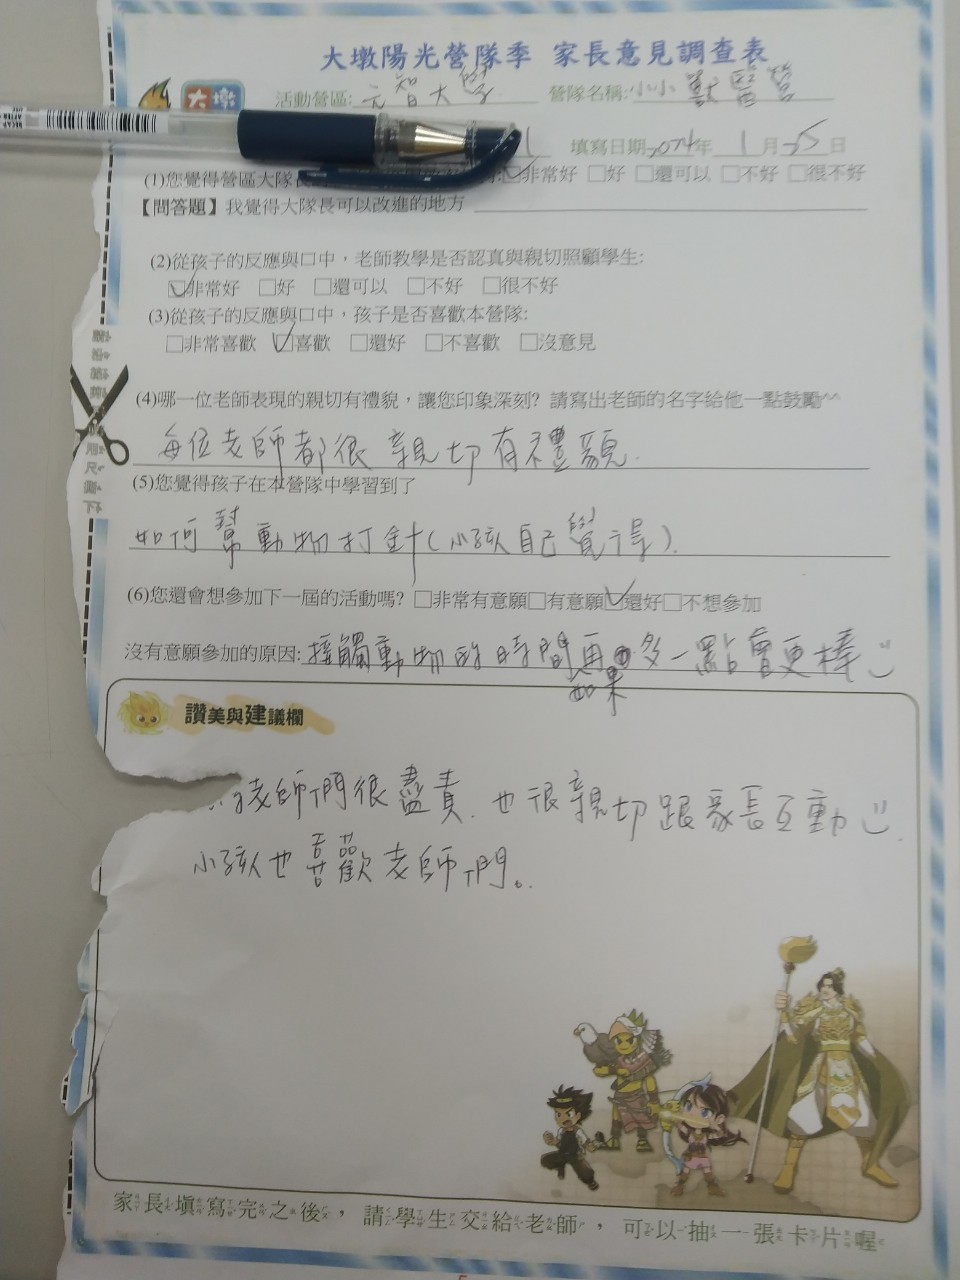 大墩陽光營隊季 家長意見調查表
大墩
活動營區: 元智大學 營隊名稱: 小小獸醫營
填寫日期 2024年 1月 25日
(1)您覺得營區大隊長 ☑非常好 □好 □還可以 □不好 □很不好
【問答題】我覺得大隊長可以改進的地方
(2)從孩子的反應與口中，老師教學是否認真與親切照顧學生:
☑非常好 □好 □還可以 □不好 □很不好
(3)從孩子的反應與口中，孩子是否喜歡本營隊:
□非常喜歡 ☑喜歡 □還好 □不喜歡 □沒意見
(4)哪一位老師表現的親切有禮貌，讓您印象深刻? 請寫出老師的名字給他一點鼓勵^^
每位老師都很親切有禮貌.
(5)您覺得孩子在本營隊中學習到了
如何幫動物打針(小孩自己覺得).
(6)您還會想參加下一屆的活動嗎? □非常有意願□有意願☑還好□不想參加
沒有意願參加的原因: 接觸動物的時間如果再多一點會更棒
讚美與建議欄
老師們很盡責. 也很親切跟家長互動
小孩也喜歡老師們。
家長填寫完之後，請學生交給老師，可以抽一張卡片喔